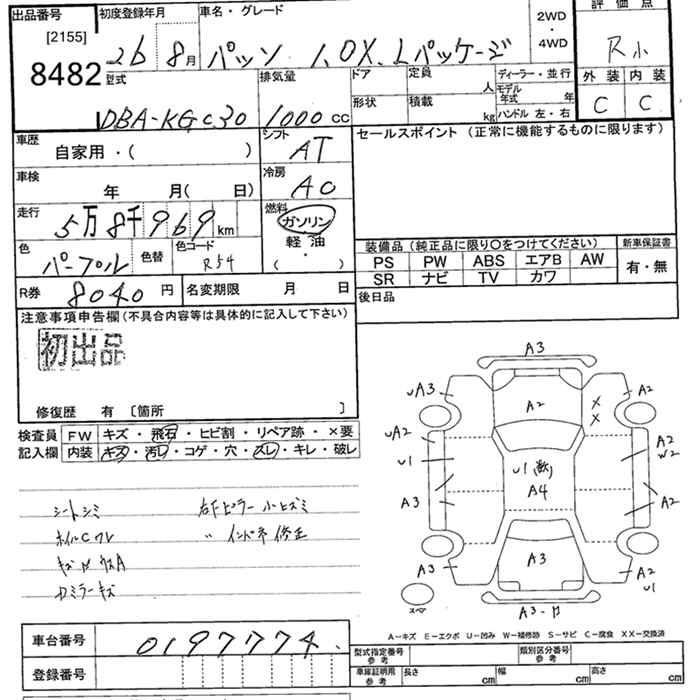 出品番号 初度登録年月 車名・グレード 2WD・4WD 評価点
[2155] 26年 8月 パッソ 1.0X.Lパッケージ R小
8482
型式 排気量 ドア 定員 人 ディーラー・並行 外装 内装
DBA-KGC30 1000cc 形状 積載 kg モデル年式 年 C C
ハンドル 左・右
車歴 シフト セールスポイント (正常に機能するものに限ります)
自家用・( ) AT
車検 冷房
年 月( 日) AC
走行 燃料
5万8千969km ガソリン
色 色替 色コード 軽油・
パープル R54 ( )
装備品 (純正品に限り○をつけてください) 新車保証書
PS PW ABS エアB AW 有・無
SR ナビ TV カワ
R券 8040円 名変期限 月 日 後日品
注意事項申告欄(不具合内容等は具体的に記入して下さい)
初出品
修復歴 有 [箇所 ]
検査員 FW キズ・飛石・ヒビ割・リペア跡・×要
記入欄 内装 キズ・汚レ・コゲ・穴・スレ・キレ・破レ
シートシミ 右Fピラー小ヒズミ
ホイルCワレ 〃 インパネ修正
ミラーキズ
A3
UA3 A2 A2
X
X
UA2 A2
W2
U1 U1
A4
A3 A2
A3 A3 A2
U1
スペア
A3-P
A-キズ E-エクボ U-凹み W-補修跡 S-サビ C-腐食 XX-交換済
車台番号 0197774.
登録番号
型式指定番号 参考 類別区分番号 参考
車庫証明用 参考 長さ cm 幅 cm 高さ cm